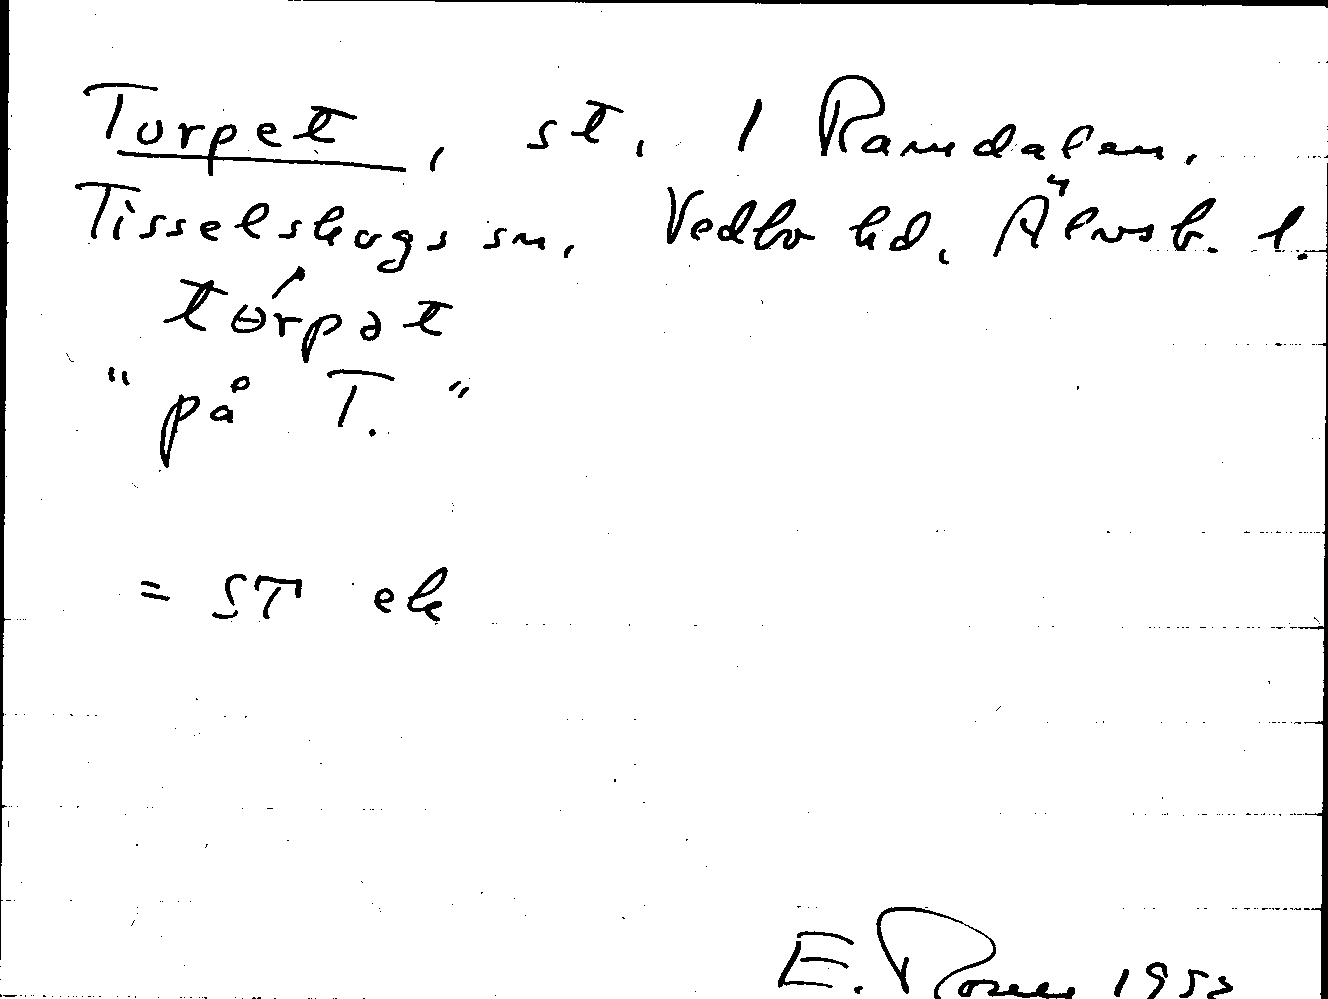 Torpet, st. 1 Ramdalen,
Tisselskogs sn, Vedbo hd, Älvsb. l.
tórpət
"på T."
= ST ek
E. Rosell 195